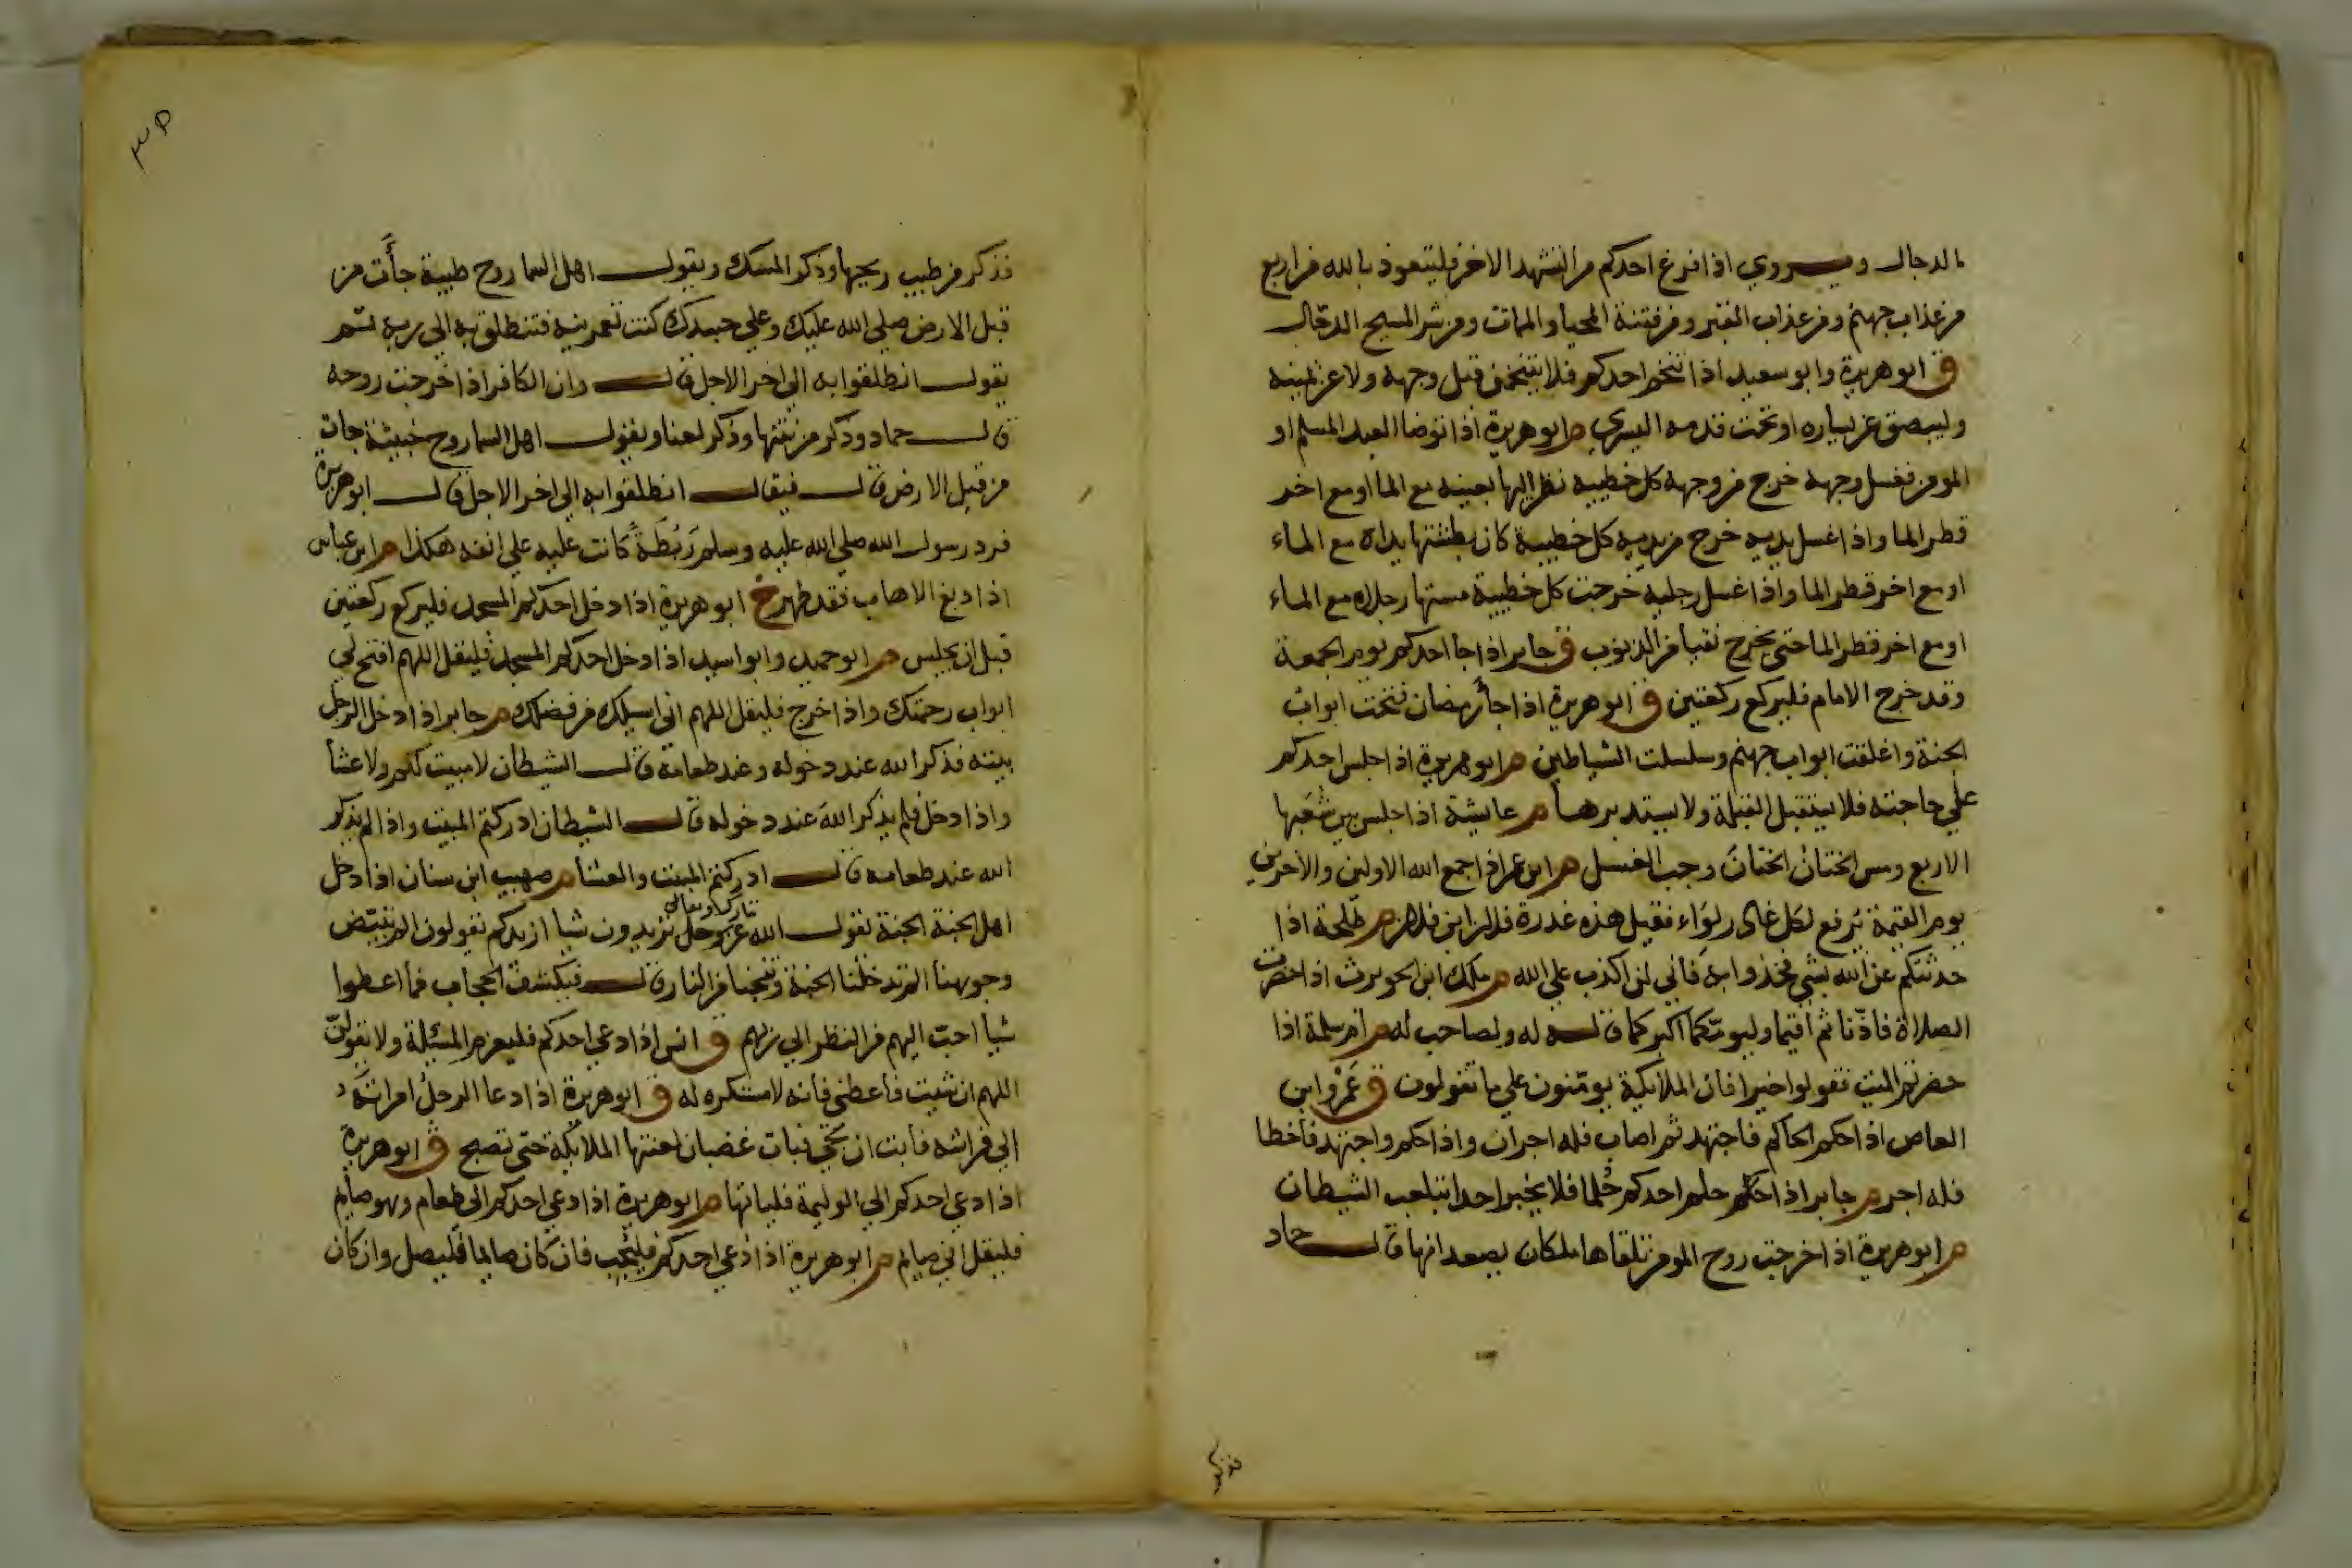 الدجال ويروي اذا فرغ احدكم من التشهد الاخر فليتعوذ بالله من اربع
من عذاب جهنم ومن عذاب القبر ومن فتنة المحيا والممات ومن شر المسيح الدجال
ق ابو هريرة وابو سعيد اذا تنخم احدكم فلا يتنخمن قبل وجهه ولا عن يمينه
وليبصق عن يساره او تحت قدمه اليسري م ابو هريرة اذا توضا العبد المسلم او
المومن فغسل وجهه خرج من وجهه كل خطيية نظر اليها بعينيه مع الما او مع اخر
قطر الما واذا غسل يديه خرج من يديه كل خطيية كان بطشتها يداه مع الماء
او مع اخر قطر الما واذا غسل رجليه خرجت كل خطيية مستها رجلاه مع الماء
او مع اخر قطر الما حتي يخرج نقيا من الذنوب ق جابر اذا جا احدكم يوم الجمعة
وقد خرج الامام فليركع ركعتين ق ابو هريرة اذا جا رمضان فتحت ابواب
الجنة واغلقت ابواب جهنم وسلسلت الشياطين م ابو هريرة اذا جلس احدكم
علي حاجته فلا يستقبل القبلة ولا يستدبرها م عايشة اذا جلس بين شعبها
الاربع ومس الختان الختان وجب الغسل م ابن عمر اذا جمع الله الاولين والاخرين
يوم القيمة يرفع لكل غادر لواء فقيل هذه غدرة فلان ابن فلان م طلحة اذا
حدثتكم عن الله بشي فخذوا به فاني لن اكذب علي الله م ملك ابن الحويرث اذا حضرت
الصلاة فاذنا ثم اقيما وليومكما اكبركما قاله له ولصاحب له م ام سلمة اذا
حضرتم الميت فقولوا خيرا فان الملايكة يومنون علي ما تقولون ق عمرو ابن
العاص اذا حكم الحاكم فاجتهد ثم اصاب فله اجران واذا حكم واجتهد فاخطا
فله اجر م جابر اذا حلم احدكم حلما فلا يخبر احدا بتلعب الشيطان
م ابو هريرة اذا خرجت روح المومن تلقاها ملكان يصعدانها قال حماد
فذكر
٣٥
فذكر من طيب ريحها وذكر المسك ويقول اهل السما روح طيبة جأت من
قبل الارض صلي الله عليك وعلي جسد كنت تعمرينه فتنطلق به الي ربه ثم
يقول انطلقوا به الي اخر الاجل قال وان الكافر اذا خرجت روحه
قال حماد وذكر من نتنها وذكر لعنا ويقول اهل السما روح خبيثة جات
من قبل الارض قال فيقال انطلقوا به الي اخر الاجل قال ابو هريرة
فرد رسول الله صلي الله عليه وسلم ريطة كانت عليه علي انفه هكذا م ابن عباس
اذا دبغ الاهاب فقد طهر خ ابو هريرة اذا دخل احدكم المسجد فليركع ركعتين
قبل ان يجلس م ابو حميد وابو اسيد اذا دخل احدكم المسجد فليقل اللهم افتح لي
ابواب رحمتك واذا خرج فليقل اللهم اني اسيلك من فضلك م جابر اذا دخل الرجل
بيته فذكر الله عند دخوله وعند طعامه قال الشيطان لا مبيت لكم ولا عشا
واذا دخل فلم يذكر الله عند دخوله قال الشيطان ادركتم المبيت واذا لم يذكر
الله عند طعامه قال ادركتم المبيت والعشا م صهيب ابن سنان اذا دخل
تبارك وتعالي
اهل الجنة الجنة يقول الله عز وجل تزيدون شيا ازيدكم يقولون الم تبيض
وجوهنا الم تدخلنا الجنة وتنجنا من النار قال فيكشف الحجاب فما اعطوا
شيا احب اليهم من النظر الي ربهم ق انس اذا دعي احدكم فليعزم المسئلة ولا يقولن
اللهم ان شيت فاعطني فانه لا مستكره له ق ابو هريرة اذا دعا الرجل امراته
الي فراشه فابت ان تجي فبات غضبان لعنتها الملايكة حتي تصبح ق ابو هريرة
اذا دعي احدكم الي الوليمة فلياتها م ابو هريرة اذا دعي احدكم الي طعام وهو صايم
فليقل اني صايم م ابو هريرة اذا دعي احدكم فليجب فان كان صايما فليصل وان كان